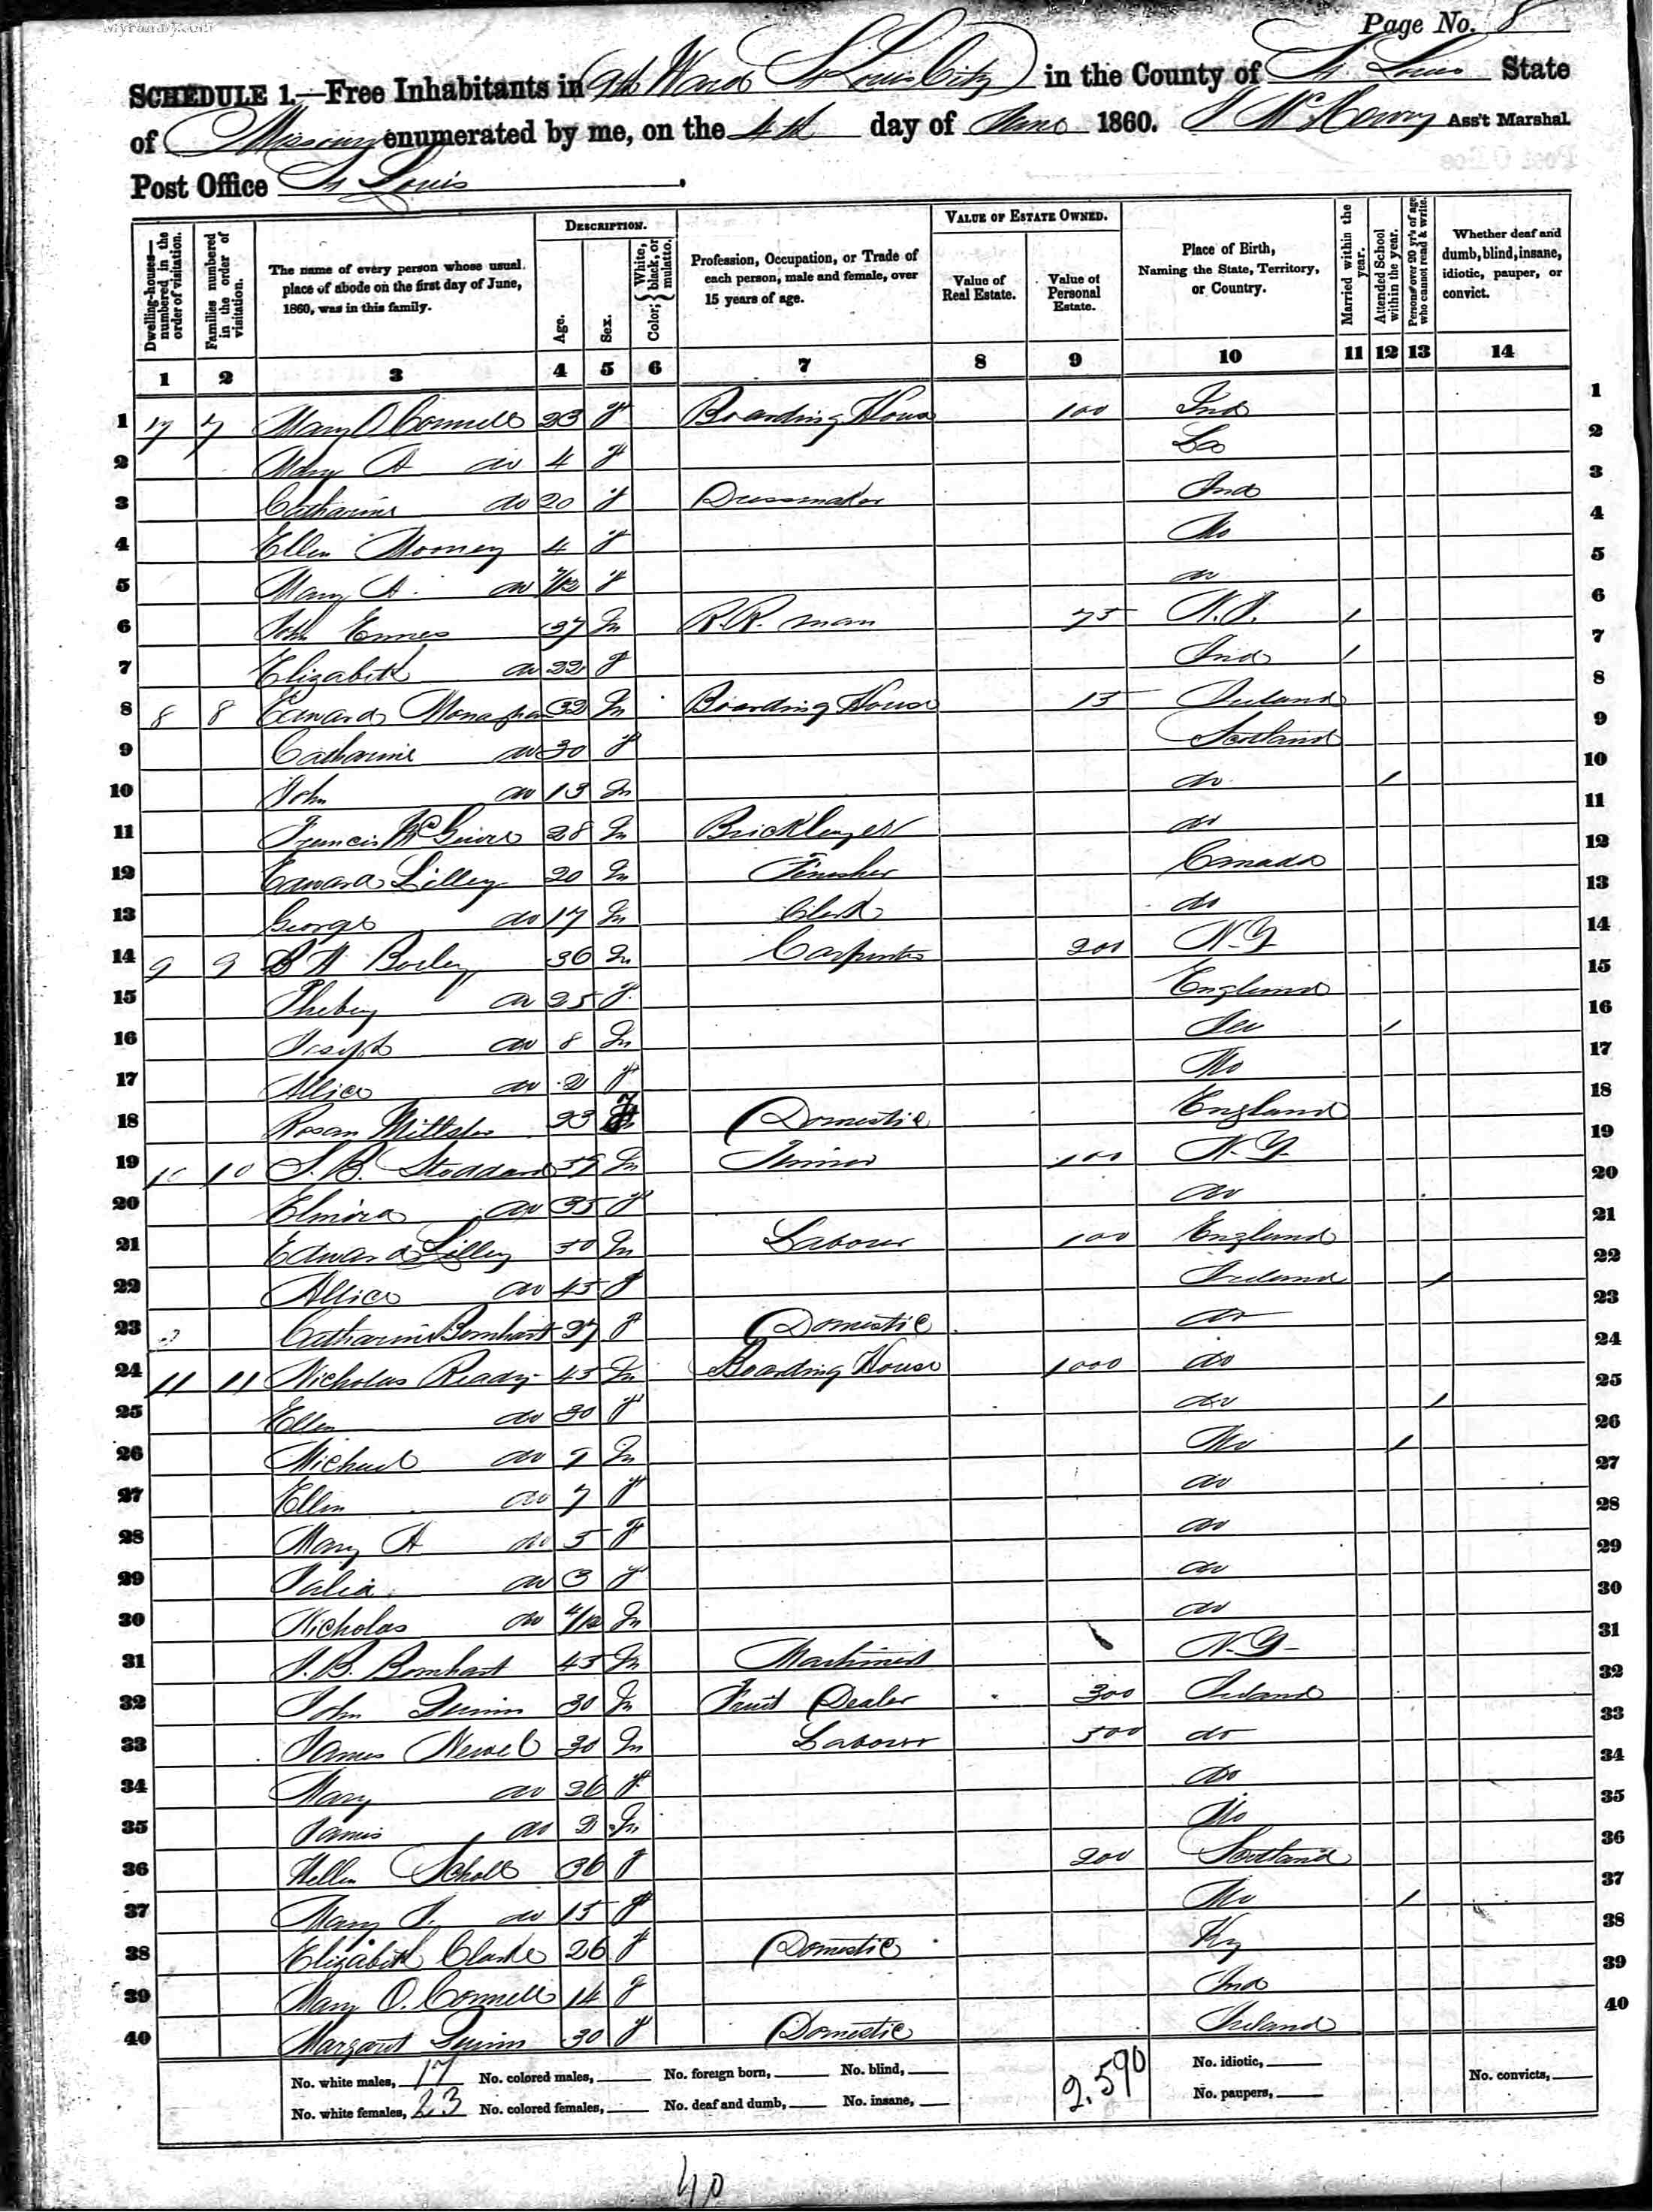 MyFamily.com
Page No. 8
SCHEDULE 1.—Free Inhabitants in 9th Ward St Louis City in the County of St. Louis State
of Missouri enumerated by me, on the 4th day of June 1860. Ass't Marshal.
Post Office St Louis
Dwelling-houses—numbered in the order of visitation.
Families numbered in the order of visitation.
The name of every person whose usual place of abode on the first day of June, 1860, was in this family.
DESCRIPTION.
Age.
Sex.
Color, { White, black, or mulatto.
Profession, Occupation, or Trade of each person, male and female, over 15 years of age.
VALUE OF ESTATE OWNED.
Value of Real Estate.
Value of Personal Estate.
Place of Birth, Naming the State, Territory, or Country.
Married within the year.
Attended School within the year.
Persons over 20 yr's of age who cannot read & write.
Whether deaf and dumb, blind, insane, idiotic, pauper, or convict.
1 2 3 4 5 6 7 8 9 10 11 12 13 14
1 7 7 Mary O Connell 23 f Boarding House 100 Ind 1
2 Mary A do 4 f 2
3 Catharine do 20 f Dressmaker Ind 3
4 Ellen Mooney 4 f Mo 4
5 Mary A. do 7/12 f do 5
6 Ennes 27 m R.R. man 75 N.J. / 6
7 Elizabeth do 22 f Ind / 7
8 8 8 Edward Monaghan 32 m Boarding House 15 Ireland 8
9 Catharine do 30 f Scotland 9
10 John do 13 m do / 10
11 Francis McGuire 28 m Bricklayer do 11
12 Edward Lilley 20 m Finisher Canada 12
13 George do 17 m Clerk do 13
14 9 9 Boiley 36 m Carpenter 200 N.Y 14
15 Pheby do 25 f England 15
16 Joseph do 8 m / 16
17 Allice do 2 f Mo 17
18 Rosan 23 f Domestic England 18
19 10 10 S. B. Stoddard 39 m 100 N.Y. 19
20 Elmira do 35 f do 20
21 Edward Lilley 50 m Labourer 100 England 21
22 Allice do 45 f Ireland / 22
23 Catharine Bernhart 37 f Domestic do 23
24 11 11 Nicholas Ready 45 m Boarding House 1000 do 24
25 Ellen do 30 f do / 25
26 Michael do 9 m Mo / 26
27 Ellen do 7 f do 27
28 Mary A do 5 f do 28
29 Julia do 3 f do 29
30 Nicholas do 4/12 m do 30
31 J. B. Bernhart 45 m Machinest N.Y 31
32 John Quinn 30 m Fruit Dealer 300 Ireland 32
33 James Newel 30 m Labourer 500 do 33
34 Mary do 36 f do 34
35 James do 2 m Mo 35
36 Hellen Scholl 36 f 200 Scotland 36
37 Mary J. do 15 f Mo / 37
38 Elizabeth Clarke 26 f Domestic Ky 38
39 Mary O. Connell 14 f Ind 39
40 Margaret Quinn 30 f Domestic Ireland 40
No. white males, 17 No. colored males, No. foreign born, No. blind, 2,590 No. idiotic, No. convicts,
No. white females, 23 No. colored females, No. deaf and dumb, No. insane, No. paupers,
40